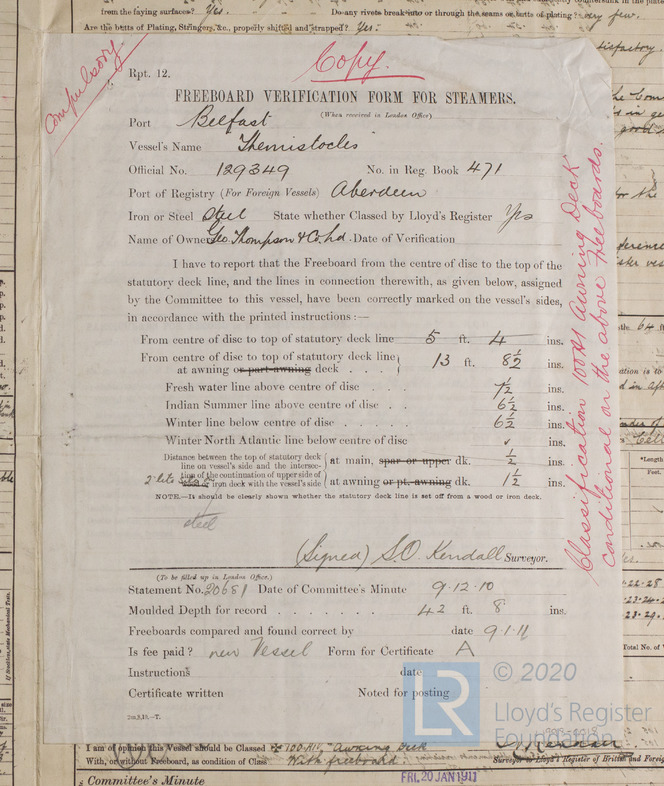 from the faying surfaces? Yes. Do any rivets break into or through the seams or butts of plating? very few.
Are the butts of Plating, Stringers, &c., properly shifted and strapped? Yes.
Compulsory
Copy.
Rpt. 12.
FREEBOARD VERIFICATION FORM FOR STEAMERS.
(When received in London Office)
Port Belfast
Vessel's Name Themistocles
Official No. 129349 No. in Reg. Book 471
Port of Registry (For Foreign Vessels) Aberdeen
Iron or Steel Steel State whether Classed by Lloyd's Register Yes
Name of Owners Geo. Thompson & Co. Ld. Date of Verification
I have to report that the Freeboard from the centre of disc to the top of the
statutory deck line, and the lines in connection therewith, as given below, assigned
by the Committee to this vessel, have been correctly marked on the vessel's sides,
in accordance with the printed instructions :—
From centre of disc to top of statutory deck line 5 ft. 4 ins.
From centre of disc to top of statutory deck line
at awning or part awning deck . . . 13 ft. 8½ ins.
Fresh water line above centre of disc . . 7½ ins.
Indian Summer line above centre of disc . . 6½ ins.
Winter line below centre of disc . . . . . 6½ ins.
Winter North Atlantic line below centre of disc ✓ ins.
Distance between the top of statutory deck
line on vessel's side and the intersec-
tion of the continuation of upper side of
iron deck with the vessel's side
at main, spar or upper dk. ½ ins.
at awning or pt. awning dk. 1½ ins.
NOTE.—It should be clearly shown whether the statutory deck line is set off from a wood or iron deck.
steel
(Signed) S.O. Kendall Surveyor.
(To be filled up in London Office.)
Statement No. 20681 Date of Committee's Minute 9.12.10
Moulded Depth for record . . . . . . . 42 ft. 8 ins.
Freeboards compared and found correct by date 9.1.11
Is fee paid? new Vessel Form for Certificate A
Instructions date
Certificate written Noted for posting
2m,9,10.—T.
Classification 100A1 Awning Deck
conditional on the above Freeboards.
LR
© 2020
Lloyd's Register
Foundation
I am of opinion this Vessel should be Classed 100A1, "Awning Deck
With, or without Freeboard, as condition of Class With freeboard
Surveyor to Lloyd's Register of British and Foreig
Committee's Minute FRI. 20 JAN 1911